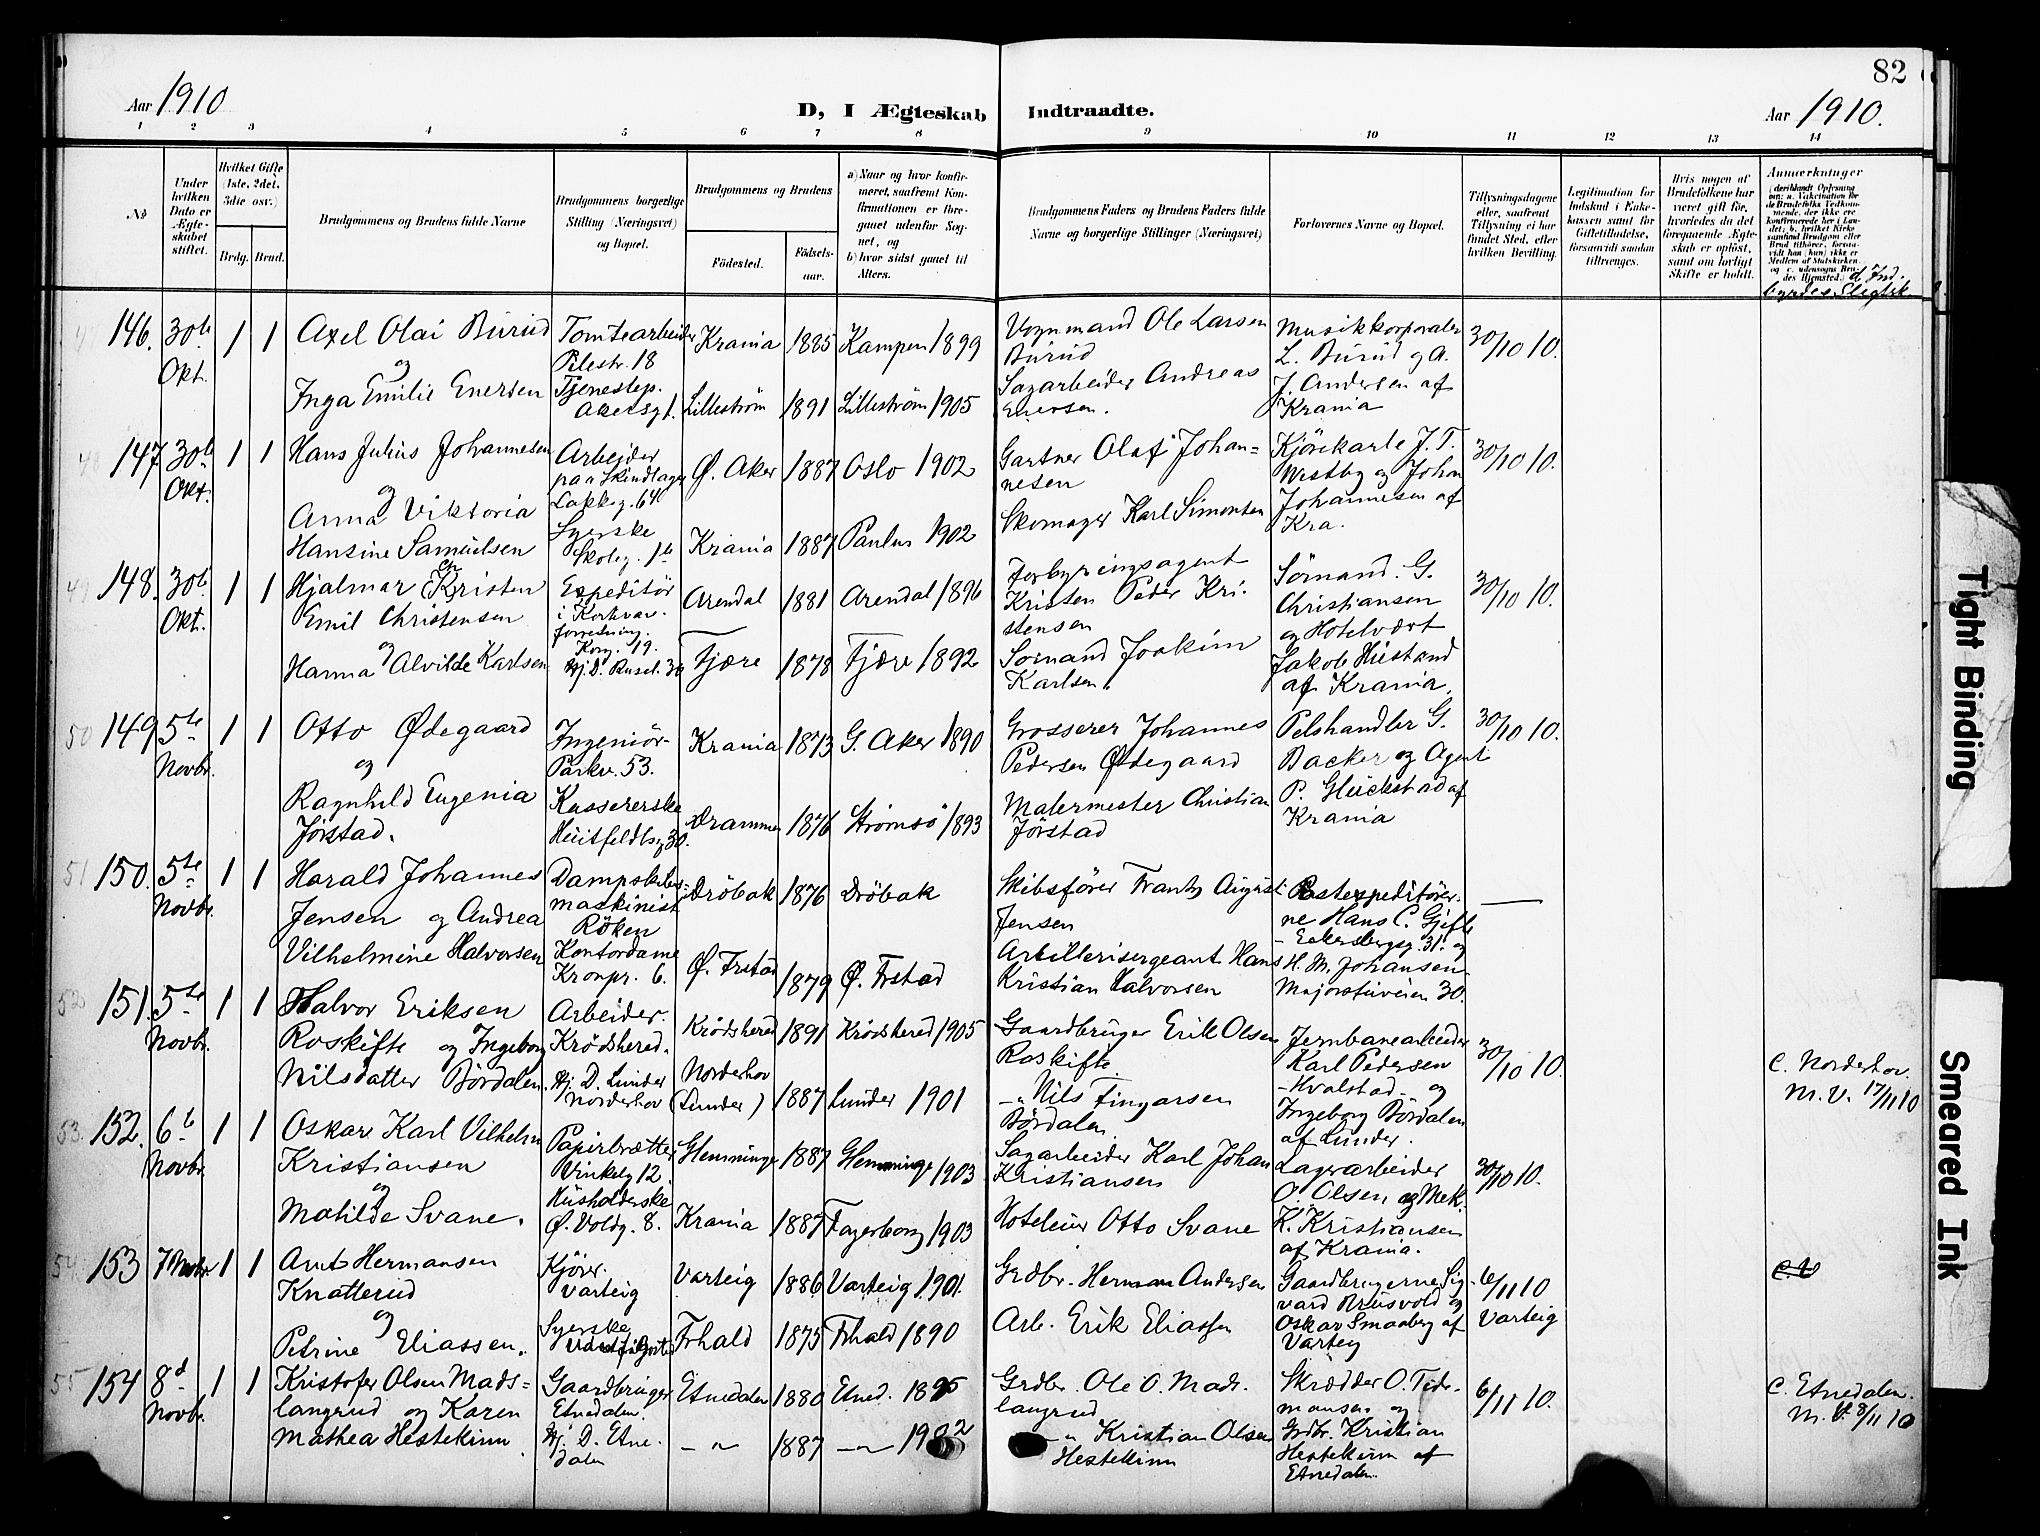 82
Aar 1910
D, I Ægteskab Indtraadte.
Aar 1910.
1 2 3 4 5 6 7 8 9 10 11 12 13 14
No
Under hvilken Dato er Ægteskabet stiftet.
Hvilket Gifte (1ste, 2det, 3die osv.)
Brdg. Brud.
Brudgommens og Brudens fulde Navne
Brudgommens borgerlige Stilling (Næringsvei) og Bopæl.
Brudgommens og Brudens
Fødested.
Fødselsaar.
a) Naar og hvor konfirmeret, saafremt Konfirmationen er foregaaet udenfor Sognet, og
b) hvor sidst gaaet til Alters.
Brudgommens Faders og Brudens Faders fulde Navne og borgerlige Stillinger (Næringsvei)
Forlovernes Navne og Bopæl.
Tillysningsdagene eller, saafremt Tillysning ei har fundet Sted, efter hvilken Bevilling.
Legitimation for Indskud i Enkekassen samt for Giftetilladelse, forsaavidt saadan tiltrænges.
Hvis nogen af Brudefolkene har været gift før, hvorledes da det foregaaende Ægteskab er opløst, samt om lovligt Skifte er holdt.
Anmerkninger
(deriblandt Oplysning om: a. Vakcination for de Brudefolks Vedkommende, der ikke ere konfirmerede her i Landet; b. hvilket Kirkesamfund Brudgom eller Brud tilhører, forsaavidt han (hun) ikke er Medlem af Statskirken, og c. udensogns Brudes Hjemsted.) d. Ind-
byrdes Slegtsk.
146. 30te Okt. 1 1
Axel Olai Burud
og
Inga Emilie Enersen
Tomtearbeider
Pilestr. 18
Tjenestep.
Akersg 1.
Krania 1885 Kampen 1899
Lilleström 1891 Lilleström 1905
Vognmand Ole Larsen
Burud
Sagarbeider Andreas
Enersen.
Musikkorporaler
L. Burud og A.
J. Andersen af
Krania
30/10 10.
147 30te Okt. 1 1
Hans Julius Johannesen
og
Anna Viktoria
Hansine Samuelsen
Arbejder
paa Skindlager
Lakkeg. 64.
Syerske
Skoleg. 1b
Ø. Aker 1887 Oslo 1902
Krania 1887 Paulus 1902
Gartner Olaf Johan=
nesen
Skomager Karl Simonsen
Kjörekarle J. T.
Westby og Johan
Johannesen af
Kra.
30/10 10.
148. 30te Okt. 1 1
Hjalmar Kristen
Emil Christensen
og
Hanna Alvilde Karlsen
Expeditör
i Korkvar.
forretning.
Kong. 19.
Hj. D. Rusel. 30
Arendal 1881 Arendal 1896
Fjære 1878 Fjære 1892
Forhyringsagent
Kristen Peder Kri-
stensen
Sömand Joakim
Karlsen.
Sömand. G.
Christiansen
og Hotelvært
Jakob Hiestand
af Krania.
30/10 10.
50
149 5te Novbr. 1 1
Otto Ødegaard
og
Ragnhild Eugenia
Jörstad.
Ingeniör
Parkv. 53.
Kassererske
Heiitfeldtsg 30.
Krania 1873 G. Aker 1890
Drammen 1876 Strömsö 1893
Grosserer Johannes
Pedersen Ødegaard
Malermester Christian
Jörstad
Pelshandler G.
Backer og Agent
P. Glückstad af
Krania
30/10 10.
51
150. 5te Novbr. 1 1
Harald Johannes
Jensen og Andrea
Vilhelmine Halvorsen
Dampskibs-
maskinist
Röken
Kontordame
Kronpr. 6.
Dröbak 1876 Dröbak
Ø. Frstad 1879 Ø. Frstad
Skibsförer Frantz August
Jensen
Artillerisergeant Hans
Kristian Halvorsen
Postexpeditörer-
ne Hans C. Gjefle
- Eckersbergsg. 31. og
H. M. Johansen
Majorstuveien 30.
—
52
151. 5te Novbr. 1 1
Halvor Eriksen
Roskifte og Ingeborg
Nilsdatter Bördalen.
Arbeider.
Krödshered.
Hj. D. Lunder
Norderhov
Krödshered 1891 Krödshered 1905
Norderhov
(Lunder) 1887 Lunder 1901
Gaardbruger Erik Olsen
Roskifte.
—„ Nils Fingarsen
Bördalen
Jernbanearbeider
Karl Pedersen
- Hvalstad - og
Ingeborg Bördalen
af Lunder.
30/10 10.
C. Norderhov.
M. V. 17/11 10
53.
152. 6te Novbr. 1 1
Oskar Karl Vilhelm
Kristiansen
og
Matilde Svane.
Papirbrætter
Vinkelg 12.
Husholderske
Ø. Voldg. 8.
Glemminge 1887 Glemminge 1903
Krania 1887 Fagerborg 1903
Sagarbeider Karl Johan
Kristiansen
Hoteleier Otto Svane
Lagerarbeider
O. Olsen og Mek.
K. Kristiansen
af Krania.
30/10 10.
54
153 7 Novbr. 1 1
Arnt Hermansen
Knatterud
og
Petrine Eliassen.
Kjörer.
Varteig
Syerske
Varteig 1886 Varteig 1901.
Frhald 1875 Frhald 1890
Grdbr. Herman Andersen
Arb. Erik Eliassen
Gaardbrugerne Sig-
vard Brusvold og
Oskar Smaaberg af
Varteig
6/11 10
Varteig
55
154 8d Novbr. 1 1
Kristofer Olsen Mads=
langrud og Karen
Mathea Hestekinn
Gaardbruger
Etnedalen.
Hj. D. Etne-
dalen
Etnedalen 1880 Etned. 1895
— „ — 1887 — „ — 1902
Grdbr. Ole O. Mads-
langrud
„ Kristian Olsen
Hestekinn
Skrædder O. Tide-
mansen og
Grdbr. Kristian
Hestekinn af
Etnedalen.
6/11 10.
C. Etnedalen.
M. V. 8/11 10
Tight Binding
Smeared Ink